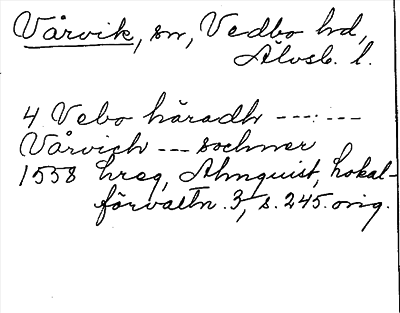 Vårvik, sn, Vedbo hd,
Älvsb. l.
4 Vebo häradh ---:---
Vårvich --- sochner
1558 hreg, Almquist, Lokal-
förvaltn. 3, s. 245. orig.